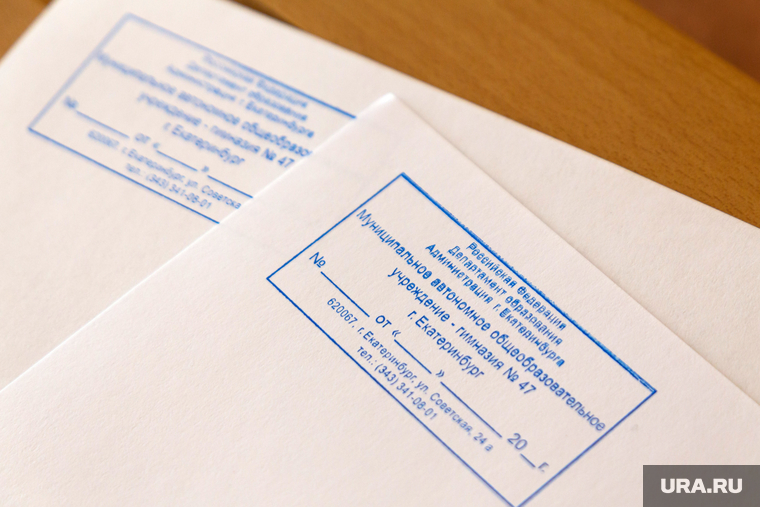 Российская Федерация
Департамент образования
Администрация г. Екатеринбурга
Муниципальное автономное общеобразо
учреждение - гимназия № 47
г. Екатеринбург
№ от « »
620067, г. Екатеринбург, ул. Советская,
тел.: (343) 341-08-01
Российская Федерация
Департамент образования
Администрация г. Екатеринбурга
Муниципальное автономное общеобразовательное
учреждение - гимназия № 47
г. Екатеринбург
№ от « » 20 г.
620067, г. Екатеринбург, ул. Советская, 24 а
тел.: (343) 341-08-01
URA.RU